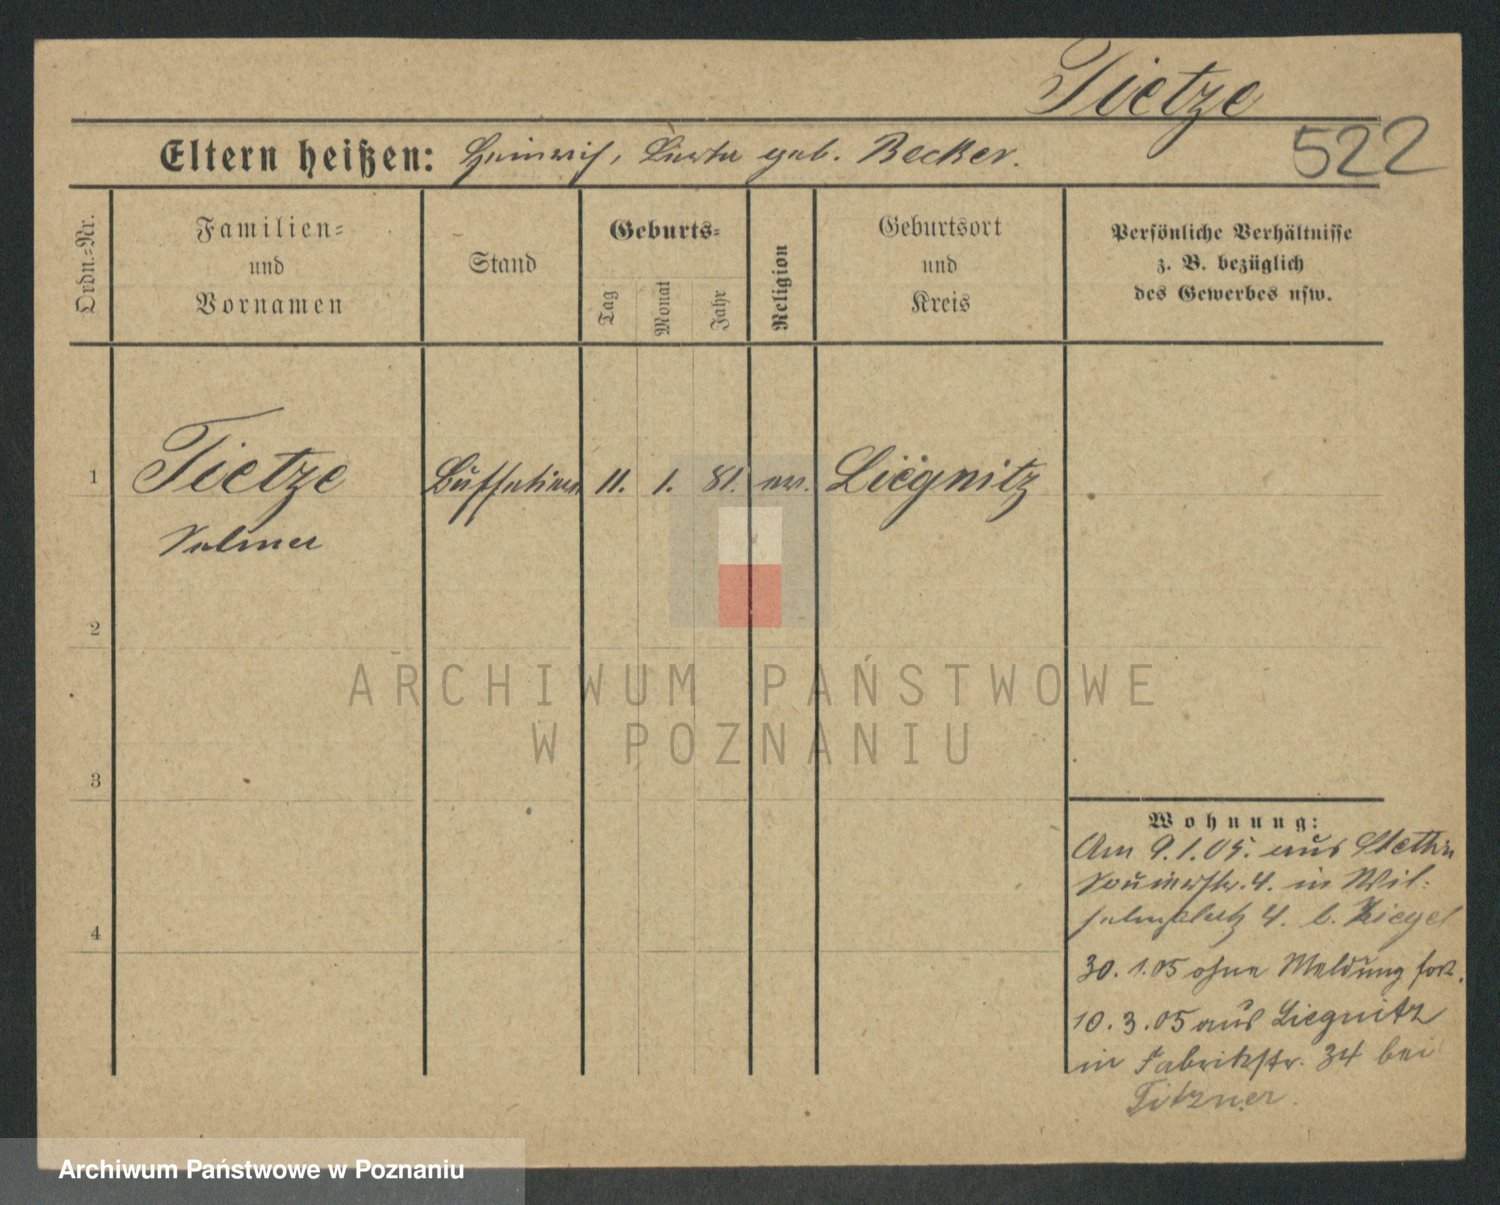 Tietze
522
Eltern heißen: Heinrich, geb. Becker.
Ordn.=Nr.
Familien=
und
Vornamen
Stand
Geburts=
Tag
Monat
Jahr
Religion
Geburtsort
und
Kreis
Persönliche Verhältnisse
z. B. bezüglich
des Gewerbes usw.
1 Tietze 11. 1. 81. ev. Liegnitz
Selmer
2
3
4
ARCHIWUM PAŃSTWOWE
W POZNANIU
Wohnung:
Am 9.1.05. aus Stettin
4. in Wil=
helmplatz 4. b. Ziegel
30.1.05 ohne Meldung fort.
10.3.05 aus Liegnitz
in Fabrikstr. 34 bei
Titzner.
Archiwum Państwowe w Poznaniu